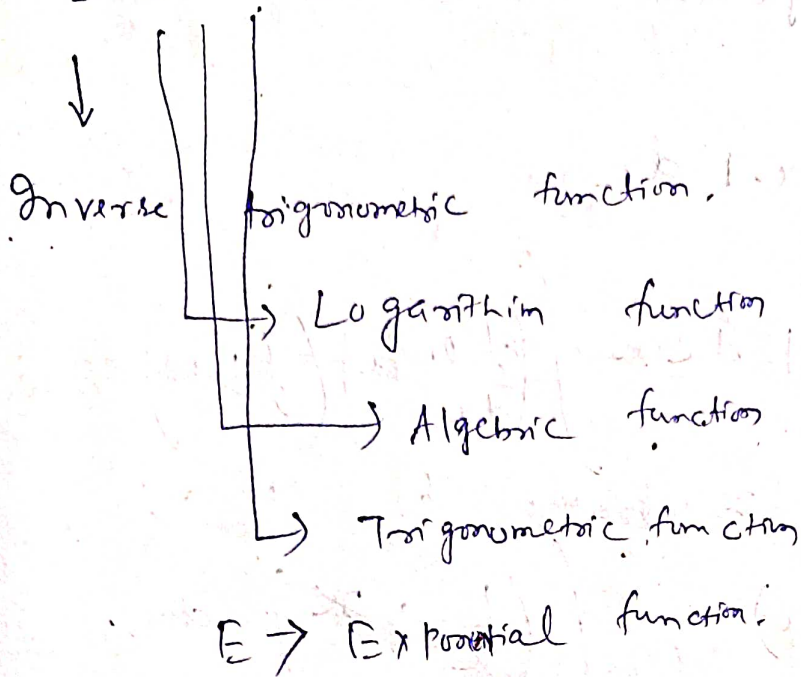 Inverse trigonometric function.
Logarithim function
Algebric function
Trigonometric function
E → Exponential function.